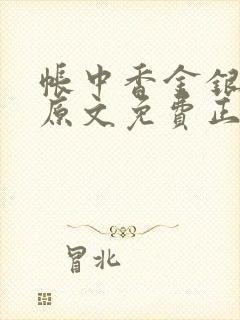 帐中香金银
原文免費正
冒北